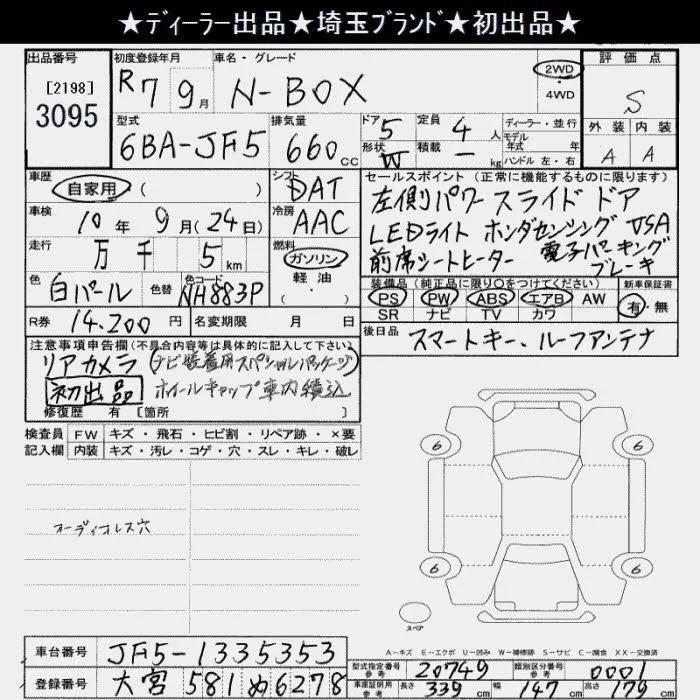 ★ディーラー出品★埼玉ブランド★初出品★
出品番号 初度登録年月 車名・グレード 評価点
[2198] R7 9月 N-BOX 2WD S
3095 ・ 4WD
型式 排気量 ドア 5 定員 4人 ディーラー・並行 外装 内装
6BA-JF5 660cc 形状 W 積載 ー kg モデル年式 年式 A A
ハンドル 左・右
車歴 シフト セールスポイント (正常に機能するものに限ります)
自家用 ( ) DAT 左側パワースライドドア
車検 冷房 LEDライト ホンダセンシング VSA
10年 9月(24日) AAC 前席シートヒーター 電子パーキング
走行 万 千 5km 燃料 ガソリン ブレーキ
・
色 色替 色コード 軽油 装備品 (純正品に限り○をつけてください) 新車保証書
白パール NH883P ( ) PS PW ABS エアB AW 有・無
SR ナビ TV カワ
R券 14,200円 名変期限 月 日 後日品 スマートキー、ルーフアンテナ
注意事項申告欄(不具合内容等は具体的に記入して下さい)
リアカメラ (ナビ装着用スペシャルパッケージ)
初出品 ホイールキャップ車内積込
修復歴 有 [箇所 ]
検査員 FW キズ・飛石・ヒビ割・リペア跡・×要
記入欄 内装 キズ・汚レ・コゲ・穴・スレ・キレ・破レ
6 6
オーディオレス穴
6 6
スペア
A－キズ E－エクボ U－凹み W－補修跡 S－サビ C－腐食 XX－交換済
車台番号 JF5-1335353 型式指定番号 参考 20749 類別区分番号 参考 0001
登録番号 大宮 581 ぬ 6278 車庫証明用 参考 長さ 339cm 幅 147cm 高さ 179cm